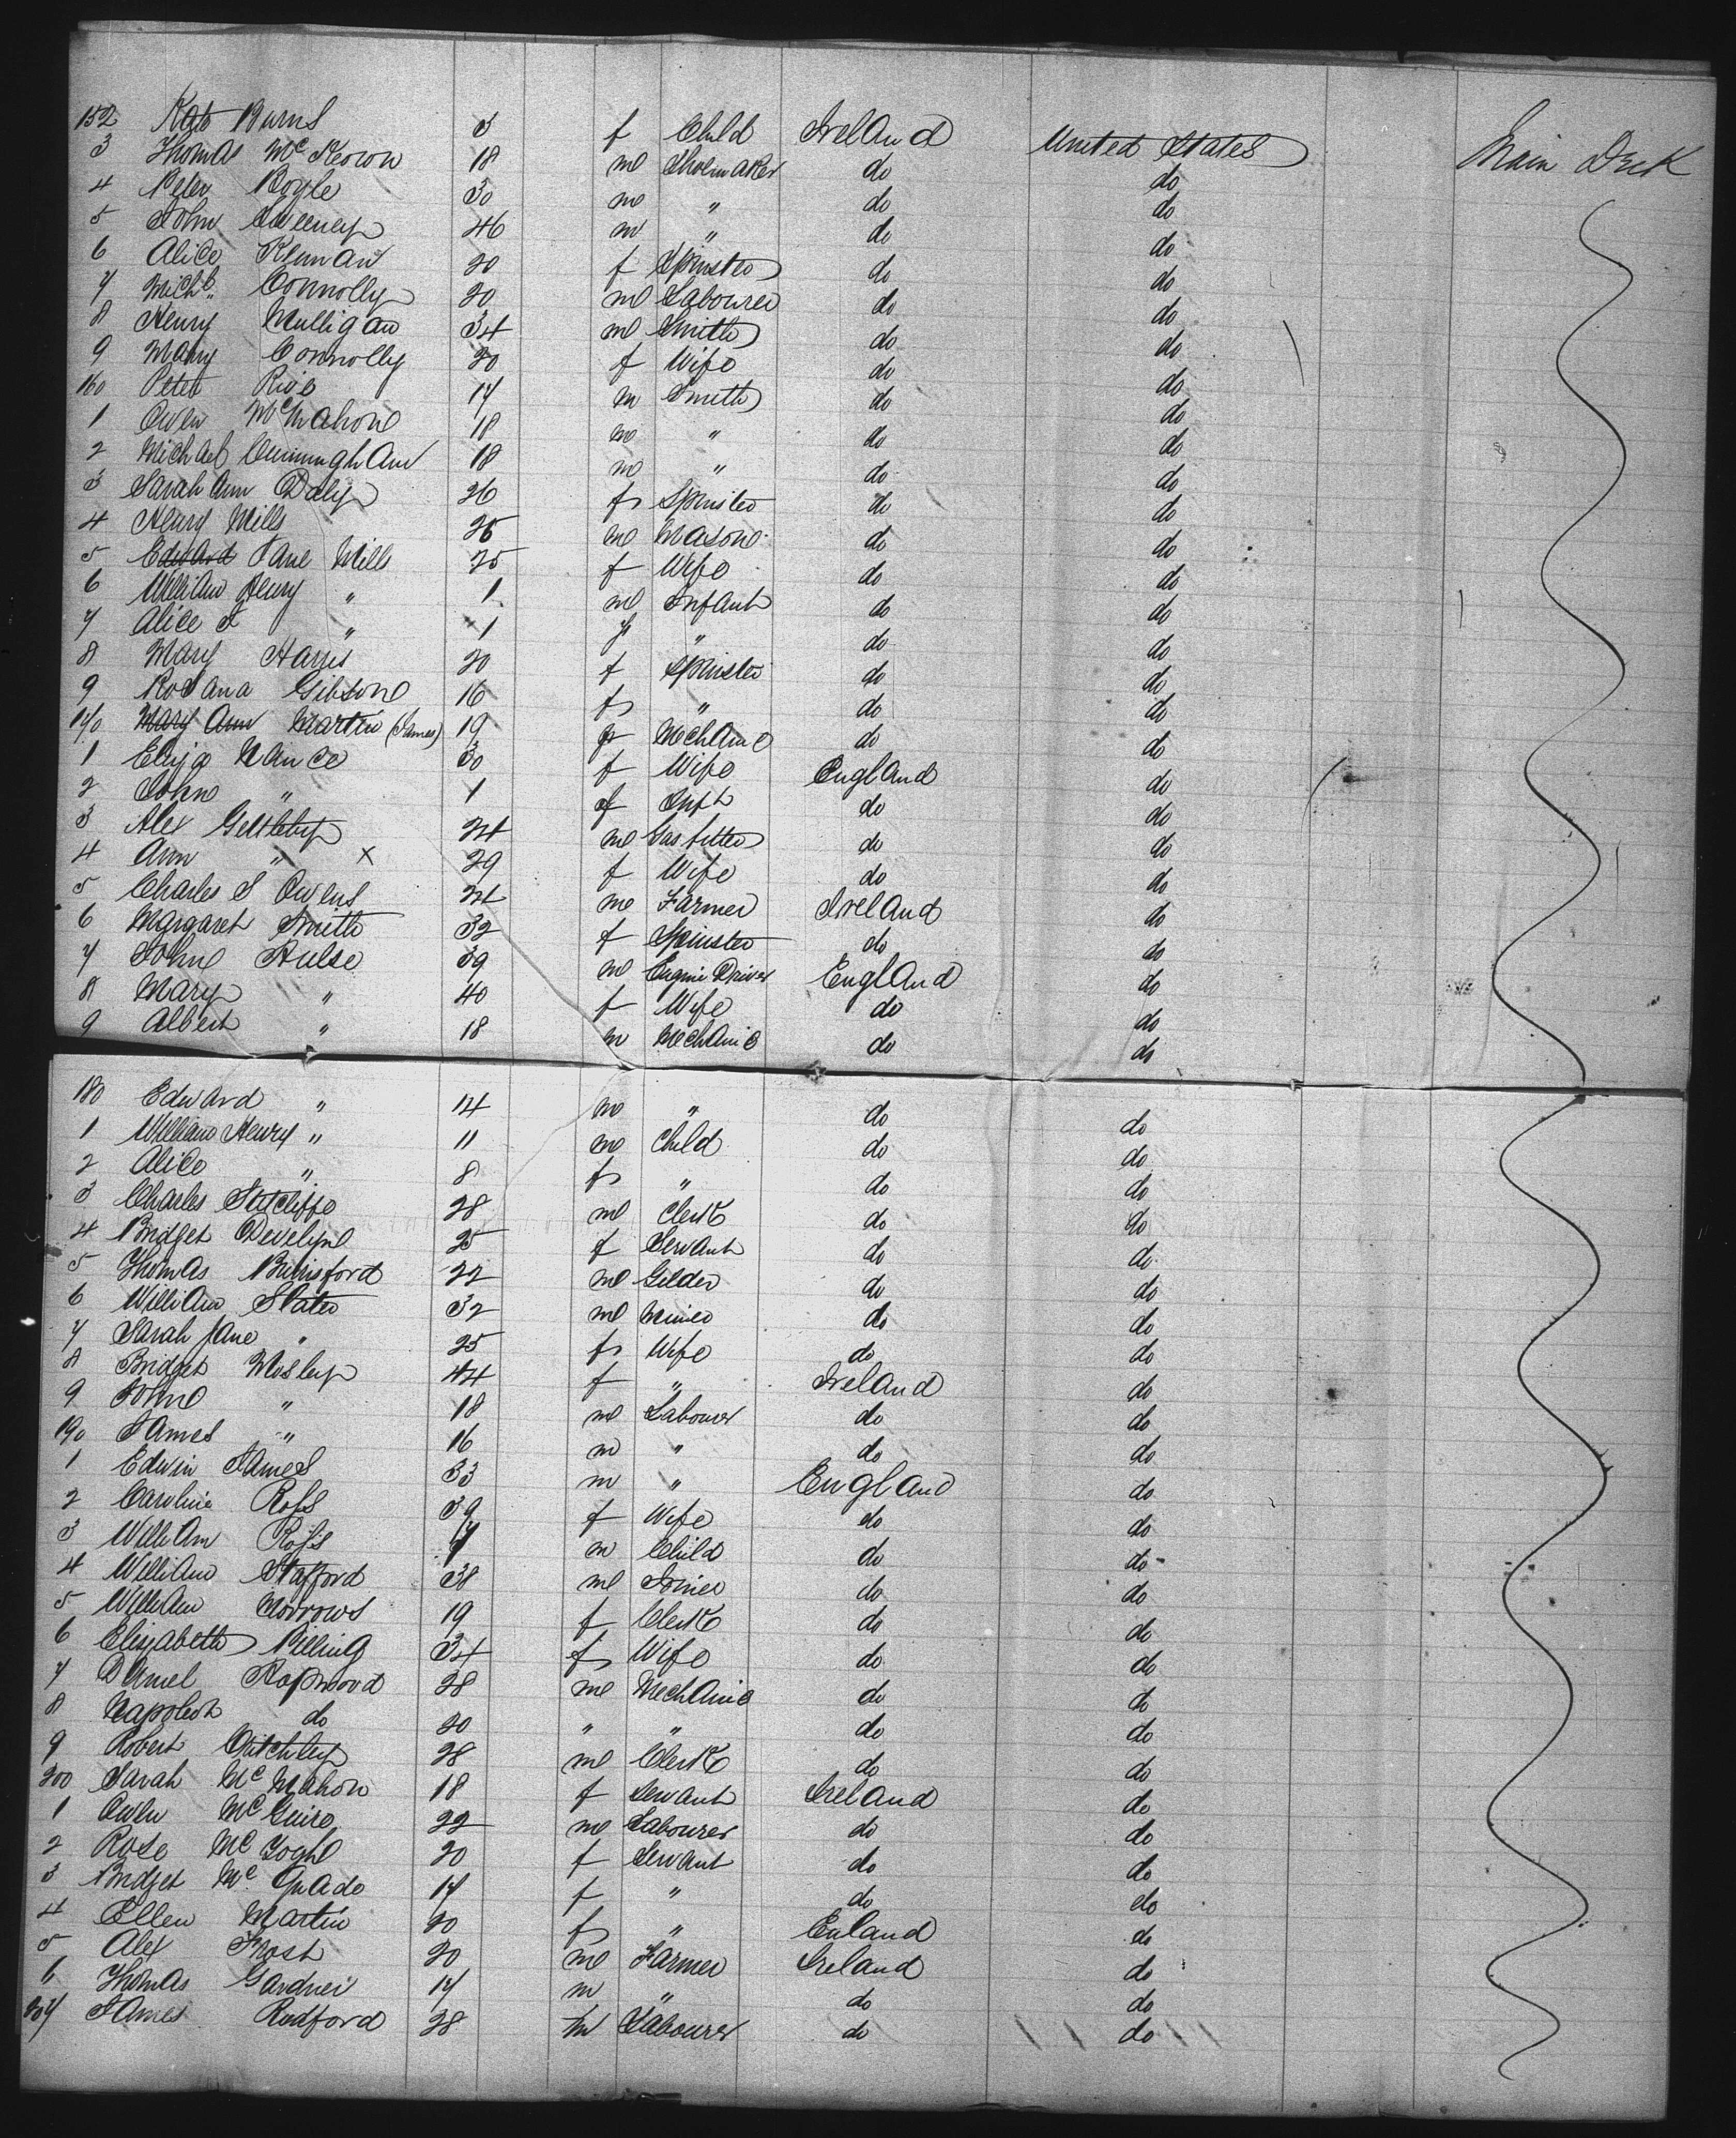 152 Kate Burns 3 f Child Ireland United States Main Deck
3 Thomas McKeown 18 m Shoemaker do do
4 Peter Boyle 30 m " do do
5 John Sweeney 46 m " do do
6 Alice Kernan 20 f Spinster do do
7 Michl. Connolly 20 m Labourer do do
8 Henry Mulligan 34 m Smith do do
9 Mary Connolly 20 f Wife do do
160 Peter Rice 17 m Smith do do
1 Owen McMahon 18 m " do do
2 Michael Cunningham 18 m " do do
3 Sarah Ann Daly 26 f Spinster do do
4 Henry Mills 26 m Mason do do
5 Edward Jane Mills 25 f Wife do do
6 William Henry " 1 m Infant do do
7 Alice J " 1 f " do do
8 Mary Harris 20 f Spinster do do
9 Rosana Gibson 16 f " do do
170 Mary Ann Martin (James) 19 Mechanic do do
1 Eliza Nance 30 f Wife England do
2 John " 1 f Inft do do
3 Alex 24 m Gasfitter do do
4 Ann " x 29 f Wife do do
5 Charles S Owens 24 m Farmer Ireland do
6 Margaret Smith 32 f Spinster do do
7 John Hulse 39 m Engine Driver England do
8 Mary " 40 f Wife do do
9 Albert " 18 m Mechanic do do
180 Edward " 14 m " do do
1 William Henry " 11 m Child do do
2 Alice " 8 f " do do
3 Charles Sutcliffe 28 m Clerk do do
4 Bridget Develyn 25 f Servant do do
5 Thomas Burrisford 22 m Gilder do do
6 William Slater 32 m Miner do do
7 Sarah Jane " 25 f Wife do do
8 Bridget Mosley 44 f " Ireland do
9 John " 18 m Labourer do do
190 James " 16 m " do do
1 Edwin James 33 m " England do
2 Caroline Ross 39 f Wife do do
3 William Ross 7 m Child do do
4 William Stafford 38 m Joiner do do
5 William Morrows 19 f Clerk do do
6 Elizabeth Billing 34 f Wife do do
7 Daniel Hopwood 28 m Mechanic do do
8 Napoleon do 20 " " do do
9 Robert Critchley 28 m Clerk do do
200 Sarah McMahon 18 f Servant Ireland do
1 Owen McGuire 22 m Labourer do do
2 Rose 20 f Servant do do
3 Bridget McQuade 17 f " do do
4 Ellen Martin 20 f " Enland do
5 Alex Frost 20 m Farmer Ireland do
6 Thomas Gardner 17 m " do do
207 James Radford 28 m Labourer do do